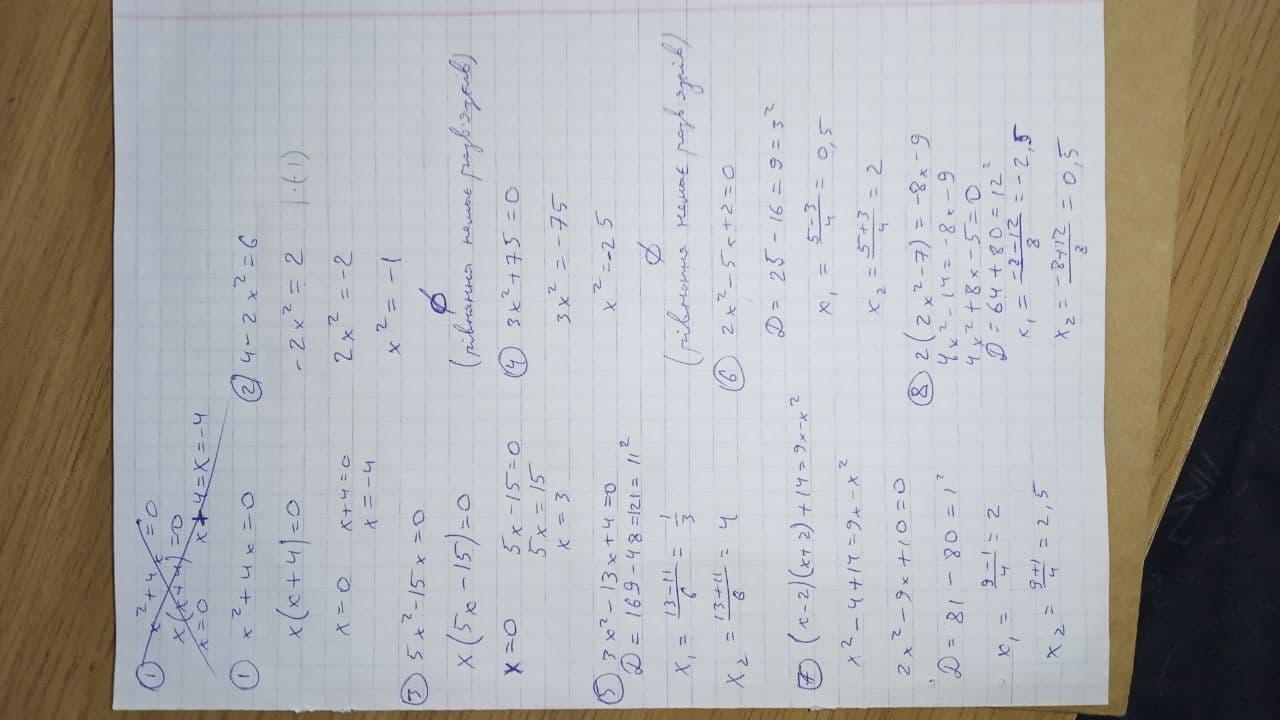 ① x² + 4x = 0
x(x+4)=0
x=0 x+4=x=-4
① x² + 4x = 0
x(x+4)=0
x=0 x+4=0
x=-4
② 4-2x²=6
-2x²=2 |·(-1)
2x²=-2
x²=-1
∅
(рівняння немає розв'язків)
③ 5x²-15x=0
x(5x-15)=0
x=0 5x-15=0
5x=15
x=3
④ 3x²+75=0
3x²=-75
x²=-25
∅
(рівняння немає розв'язків)
⑤ 3x²-13x+4=0
D=169-48=121=11²
x₁ = (13-11)/6 = 1/3
x₂ = (13+11)/6 = 4
⑥ 2x²-5x+2=0
D=25-16=9=3²
x₁ = (5-3)/4 = 0,5
x₂ = (5+3)/4 = 2
⑦ (x-2)(x+2)+14=9x-x²
x²-4+14=9x-x²
2x²-9x+10=0
D=81-80=1²
x₁ = (9-1)/4 = 2
x₂ = (9+1)/4 = 2,5
⑧ 2(2x²-7)=-8x-9
4x²-14=-8x-9
4x²+8x-5=0
D=64+80=12²
x₁ = (-8-12)/8 = -2,5
x₂ = (-8+12)/8 = 0,5